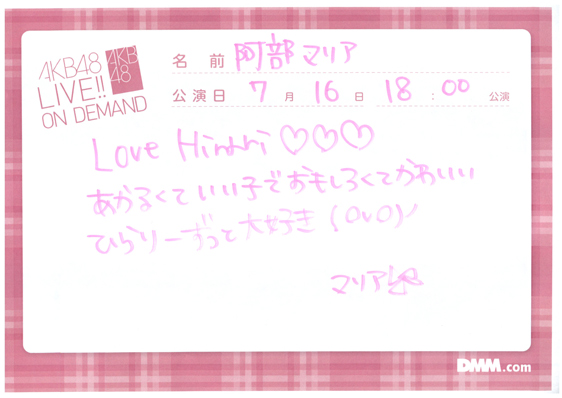 AKB48
LIVE!!
ON DEMAND
AKB
48
名 前 阿部マリア
公演日 7 月 16 日 18 : 00 公演
Love Hirari ♡♡♡
あかるくていい子でおもしろくてかわいい
ひらりーずっと大好き (OvO)/
マリア
DMM.com